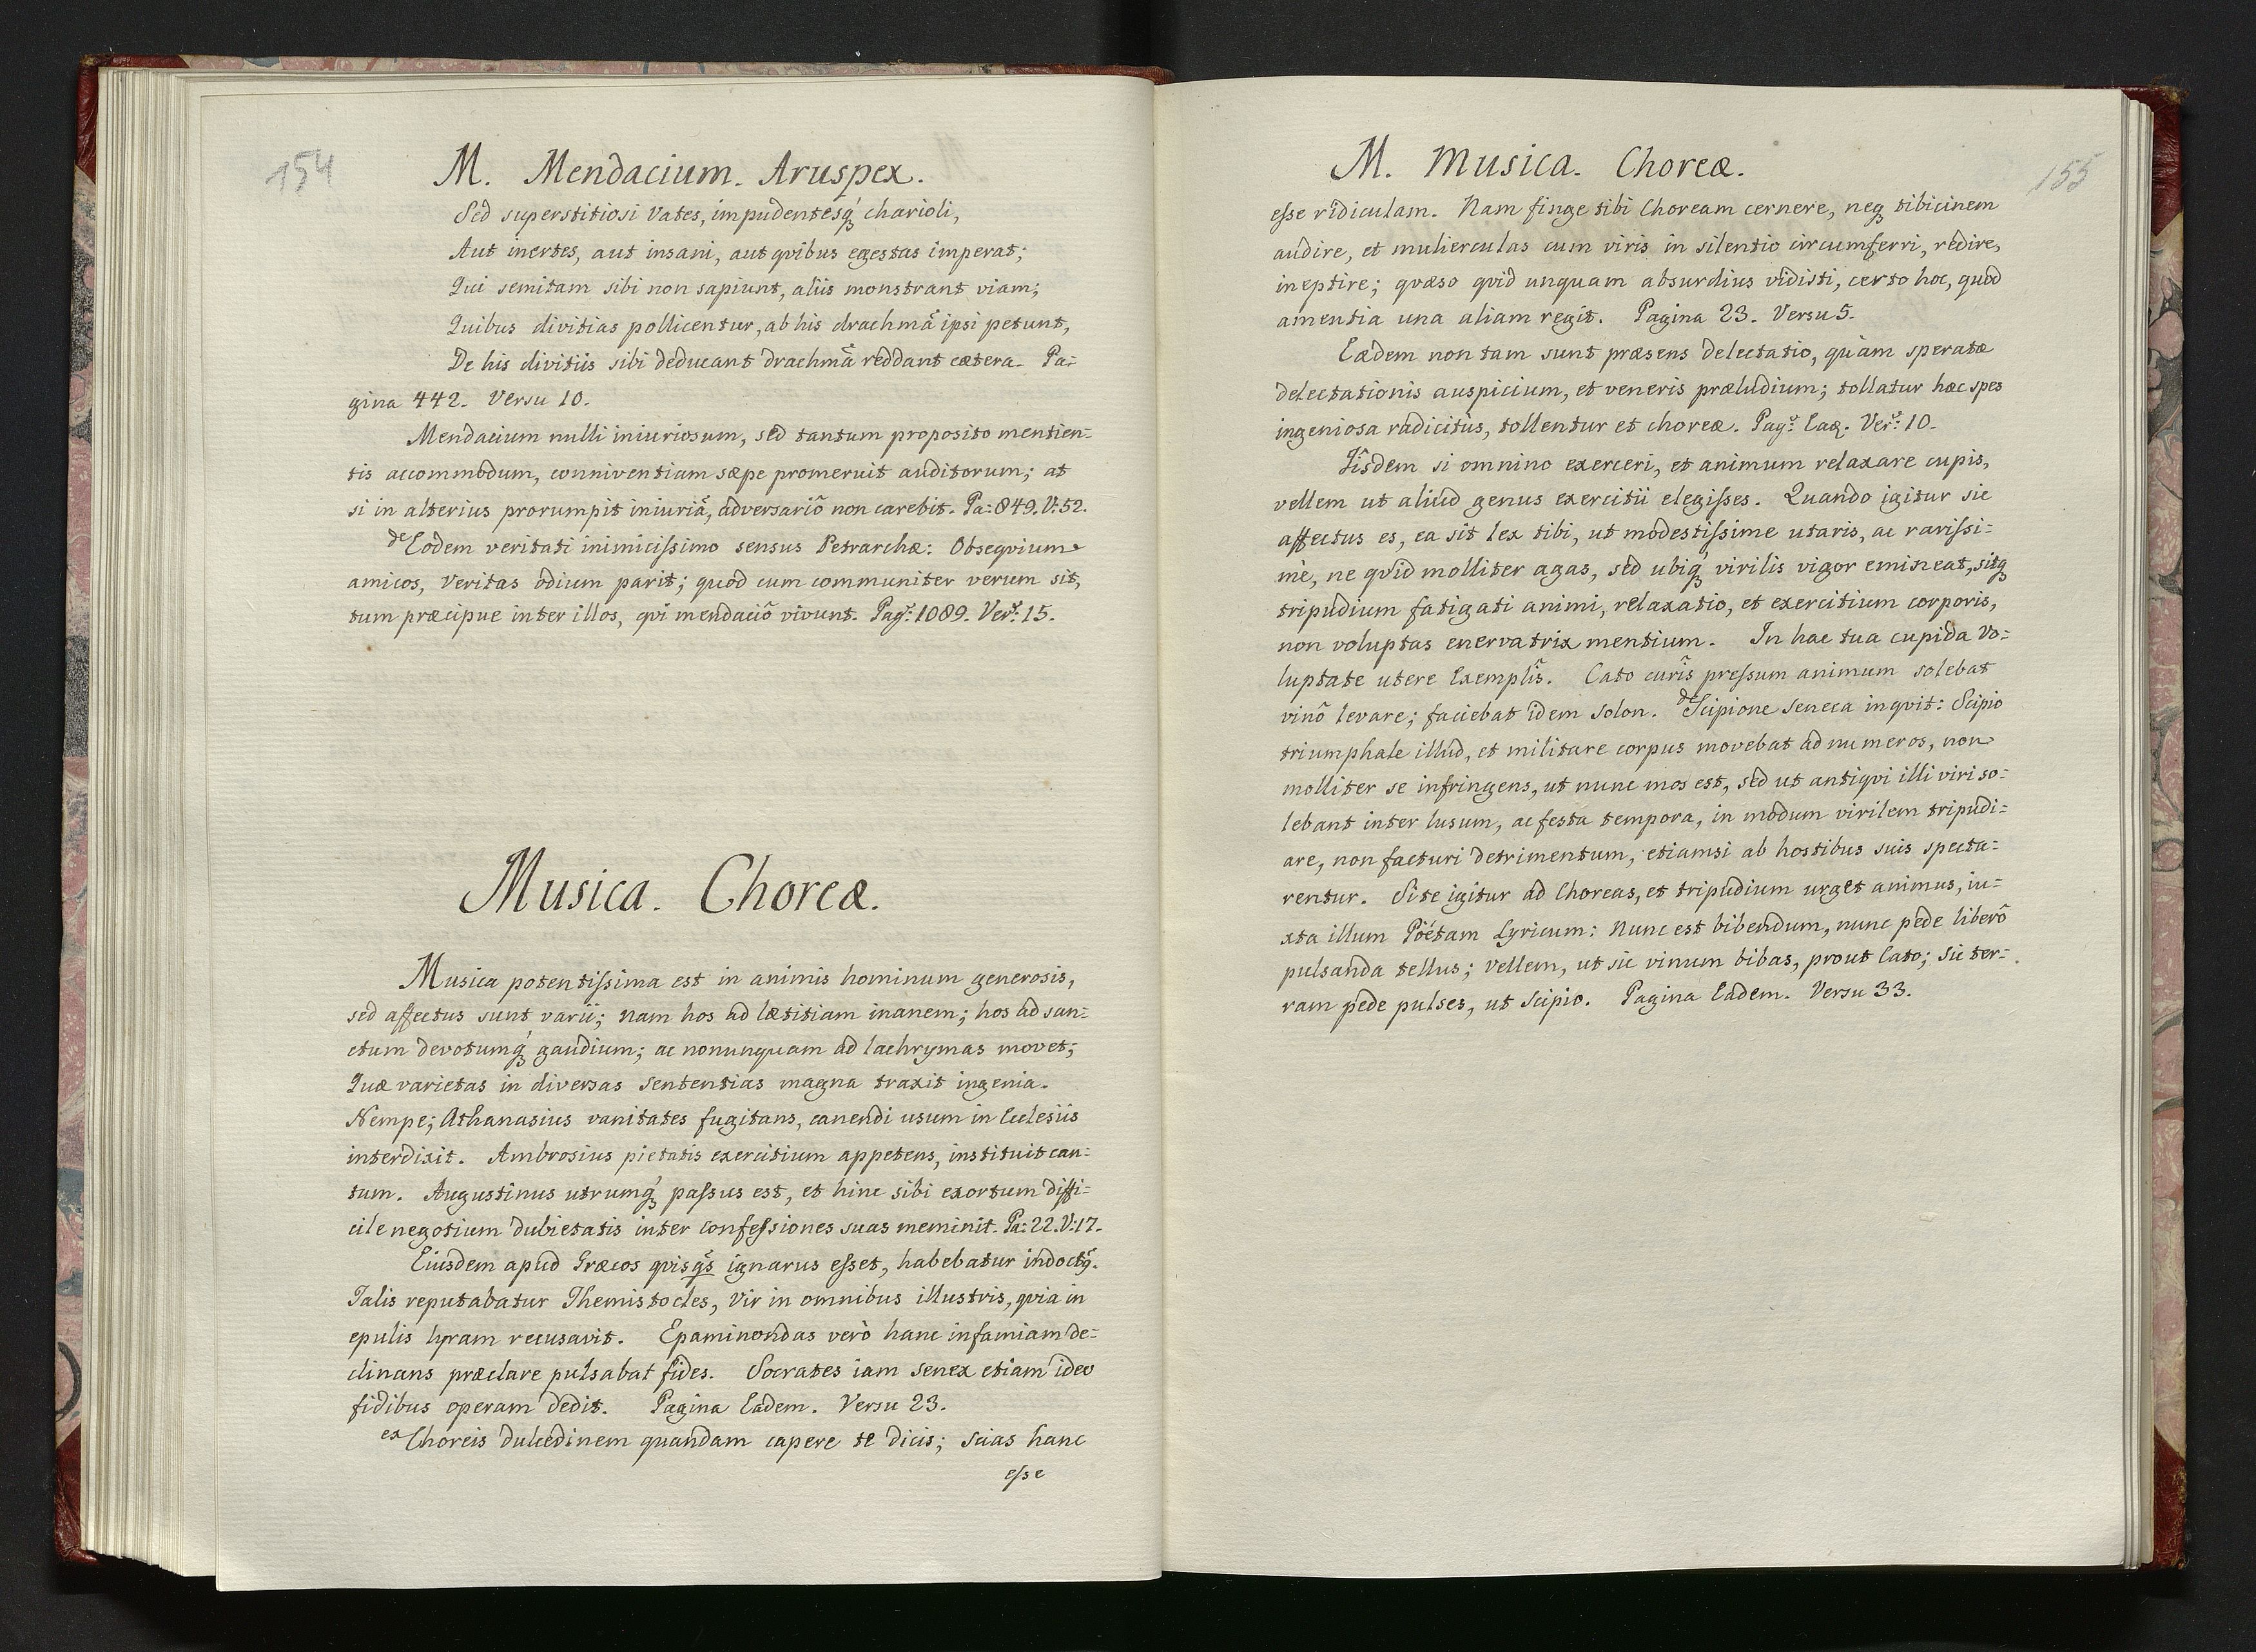 154
M. Mendacium. Aruspex.
Sed superstitiosi vates, impudentesq́ꝫ charioli,
Aut inertes, aut insani, aut qvibus egestas imperat;
Qui semitam sibi non sapiunt, aliis monstrant viam;
Quibus divitias pollicentur, ab his drachmã ipsi petunt,
De his divitiis sibi deducant drachmã reddant cætera. Pa=
gina 442. Versu 10.
Mendacium nulli iniuriosum, sed tantum proposito mentien=
tis accommodum, conniventiam sæpe promeruit auditorum; at
si in alterius prorumpit iniuriã, adversariô non carebit. Pa: 849. V: 52.
de Eodem veritati inimicissimo sensus Petrarchæ: Obseqvium
amicos, Veritas odium parit; quod cum communiter verum sit,
tum præcipue inter illos, qvi mendaciô vivunt. Pag: 1089. Ver: 15.
Musica. Choreæ.
Musica potentissima est in animis hominum generosis,
sed affectus sunt varii; nam hos ad lætitiam inanem; hos ad san=
ctum devotumq́ꝫ gaudium; ac nonunquam ad lachrymas movet;
Quæ varietas in diversas sententias magna traxit ingenia.
Nempe; Athanasius vanitates fugitans, canendi usum in Ecclesiis
interdixit. Ambrosius pietatis exercitium appetens, instituit can=
tum. Augustinus utrumq́ꝫ passus est, et hinc sibi exortum diffi=
cile negotium dubietatis inter Confessiones suas meminit. Pa: 22. V: 17.
Eiusdem apud Græcos qvisqs ignarus esset, habebatur indoctꝰ.
Talis reputabatur Themistocles, Vir in omnibus illustris, qvia in
epulis lyram recusavit. Epaminondas verò hanc infamiam de=
clinans præclare pulsabat fides. Socrates iam senex etiam ideo
fidibus operam dedit. Pagina Eadem. Versu 23.
ex Choreis dulcedinem quandam capere te dicis; scias hanc
esse
155
M. Musica. Choreæ.
esse ridiculam. Nam finge tibi Choream cernere, neqꝫ tibicinem
audire, et mulierculas cum viris in silentio circumferri, redire,
ineptire; qvæso qvid unquam absurdius vidisti, certo hoc, quod
amentia una aliam regit. Pagina 23. Versu 5.
Eædem non tam sunt præsens delectatio, quàm speratæ
delectationis auspicium, et veneris præludium; tollatur hæc spes
ingeniosa radicitùs, tollentur et choreæ. Pag: Eaꝗ. Ver: 10.
Iîsdem si omnino exerceri, et animum relaxare cupis,
vellem ut aliud genus exercitii elegisses. Quando igitur sic
affectus es, ea sit lex tibi, ut modestissime utaris, ac rarissi=
mè, ne qvid molliter agas, sed ubiq́ꝫ virilis vigor emineat, sitqꝫ
tripudium fatigati animi, relaxatio, et exercitium corporis,
non voluptas enervatrix mentium. In hac tua cupida vo=
luptate utere Exemplîs. Cato curîs pressum animum solebat
vinô levare; faciebat idem Solon. de Scipione Seneca inqvit: Scipio
triumphale illud, et militare corpus movebat ad numeros, non
molliter se infringens, ut nunc mos est, sed ut antiqvi illi viri so=
lebant inter lusum, ac festa tempora, in modum virilem tripudi=
are, non facturi detrimentum, etiamsi ab hostibus suis specta=
rentur. Si te igitur ad Choreas, et tripudium urget animus, iu=
xta illum Poëtam Lyricum: Nunc est bibendum, nunc pede liberô
pulsanda tellus; Vellem, ut sic vinum bibas, prout Cato; sic ter=
ram pede pulses, ut Scipio. Pagina Eadem. Versu 33.